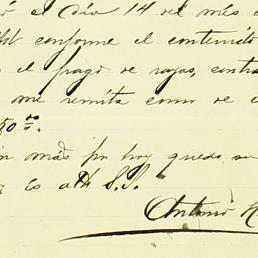 el día 14 del més
conforme el contenido
el pago de rayas, contra
me remita como de c
50 °°.
más por hoy quedo su
es atto S.S.
Antonio